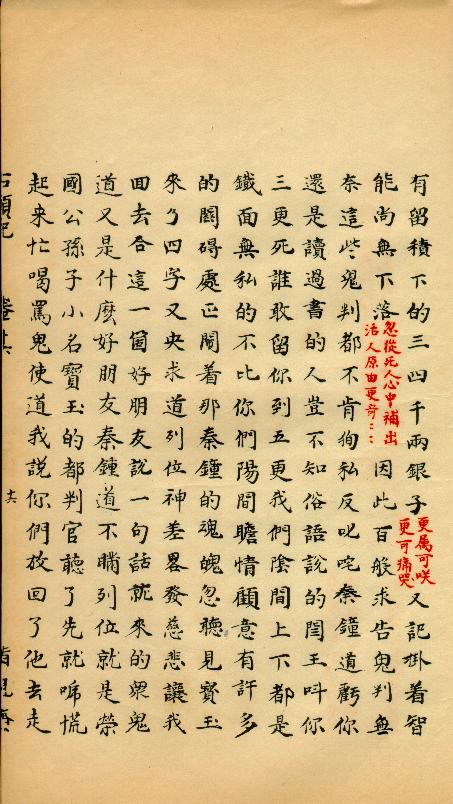 有留積下的三四千兩銀子更属可咲更可痛哭又記掛着智
能尚無下落忽從死人心中補出活人原由更奇〻〻因此百般求告鬼判無
奈這些鬼判都不肯狥私反叱咤秦鍾道虧你
還是讀過書的人豈不知俗語說的閻王呌你
三更死誰敢留你到五更我們陰間上下都是
鐵面無私的不比你們陽間瞻情顧意有許多
的関碍處正鬧着那秦鍾的魂魄忽聽見寳玉
來了四字又央求道列位神差畧發慈悲讓我
囬去合這一箇好朋友說一句話就來的衆鬼
道又是什麽好朋友秦鍾道不瞞列位就是榮
國公孫子小名寳玉的都判官聽了先就唬慌
起来忙喝罵鬼使道我說你們放回了他去走
石頭記 卷十六 十六 脂硯齋